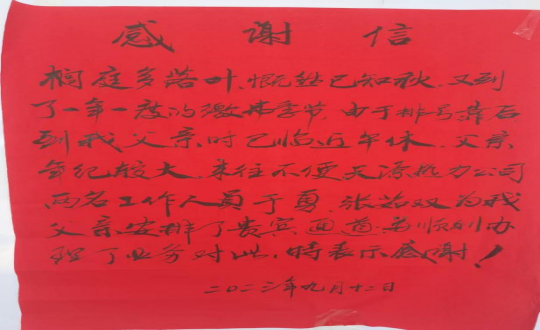 感谢信
桐庭多落叶，慨然已知秋，又到
了一年一度的缴费季节，由于排号靠后
到我父亲时已临近午休，父亲
年纪较大，来往不便天源热力公司
两名工作人员于勇，张茹双为我
父亲安排了贵宾通道，顺利办
理了业务对此，特表示感谢！
二〇二二年九月十二日